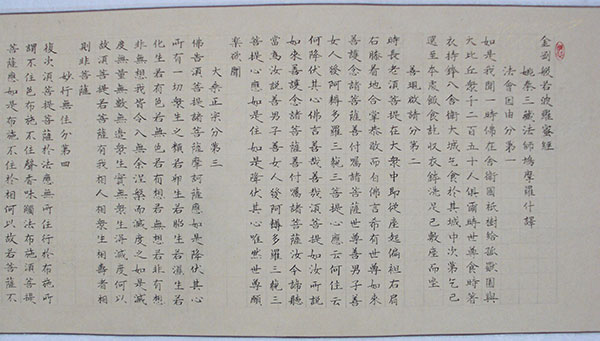 金剛般若波羅蜜經
姚秦三藏法師鳩摩羅什譯
法會因由分第一
如是我聞一時佛在舍衛國祇樹給孤獨園與
大比丘衆千二百五十人俱爾時世尊食時著
衣持鉢入舍衛大城乞食於其城中次第乞已
還至本處飯食訖收衣鉢洗足已敷座而坐
善現啟請分第二
時長老須菩提在大衆中即從座起偏袒右肩
右膝着地合掌恭敬而白佛言希有世尊如來
善護念諸菩薩善付囑諸菩薩世尊善男子善
女人發阿耨多羅三藐三菩提心應云何住云
何降伏其心佛言善哉善哉須菩提如汝所說
如來善護念諸菩薩善付囑諸菩薩汝今諦聽
當為汝說善男子善女人發阿耨多羅三藐三
菩提心應如是住如是降伏其心唯然世尊願
樂欲聞
大乘正宗分第三
佛告須菩提諸菩薩摩訶薩應如是降伏其心
所有一切衆生之類若卵生若胎生若濕生若
化生若有色若無色若有想若無想若非有想
非無想我皆令入無餘涅槃而滅度之如是滅
度無量無數無邊衆生實無衆生得滅度何以
故須菩提若菩薩有我相人相衆生相壽者相
則非菩薩
妙行無住分第四
復次須菩提菩薩於法應無所住行於布施所
謂不住色布施不住聲香味觸法布施須菩提
菩薩應如是布施不住於相何以故若菩薩不